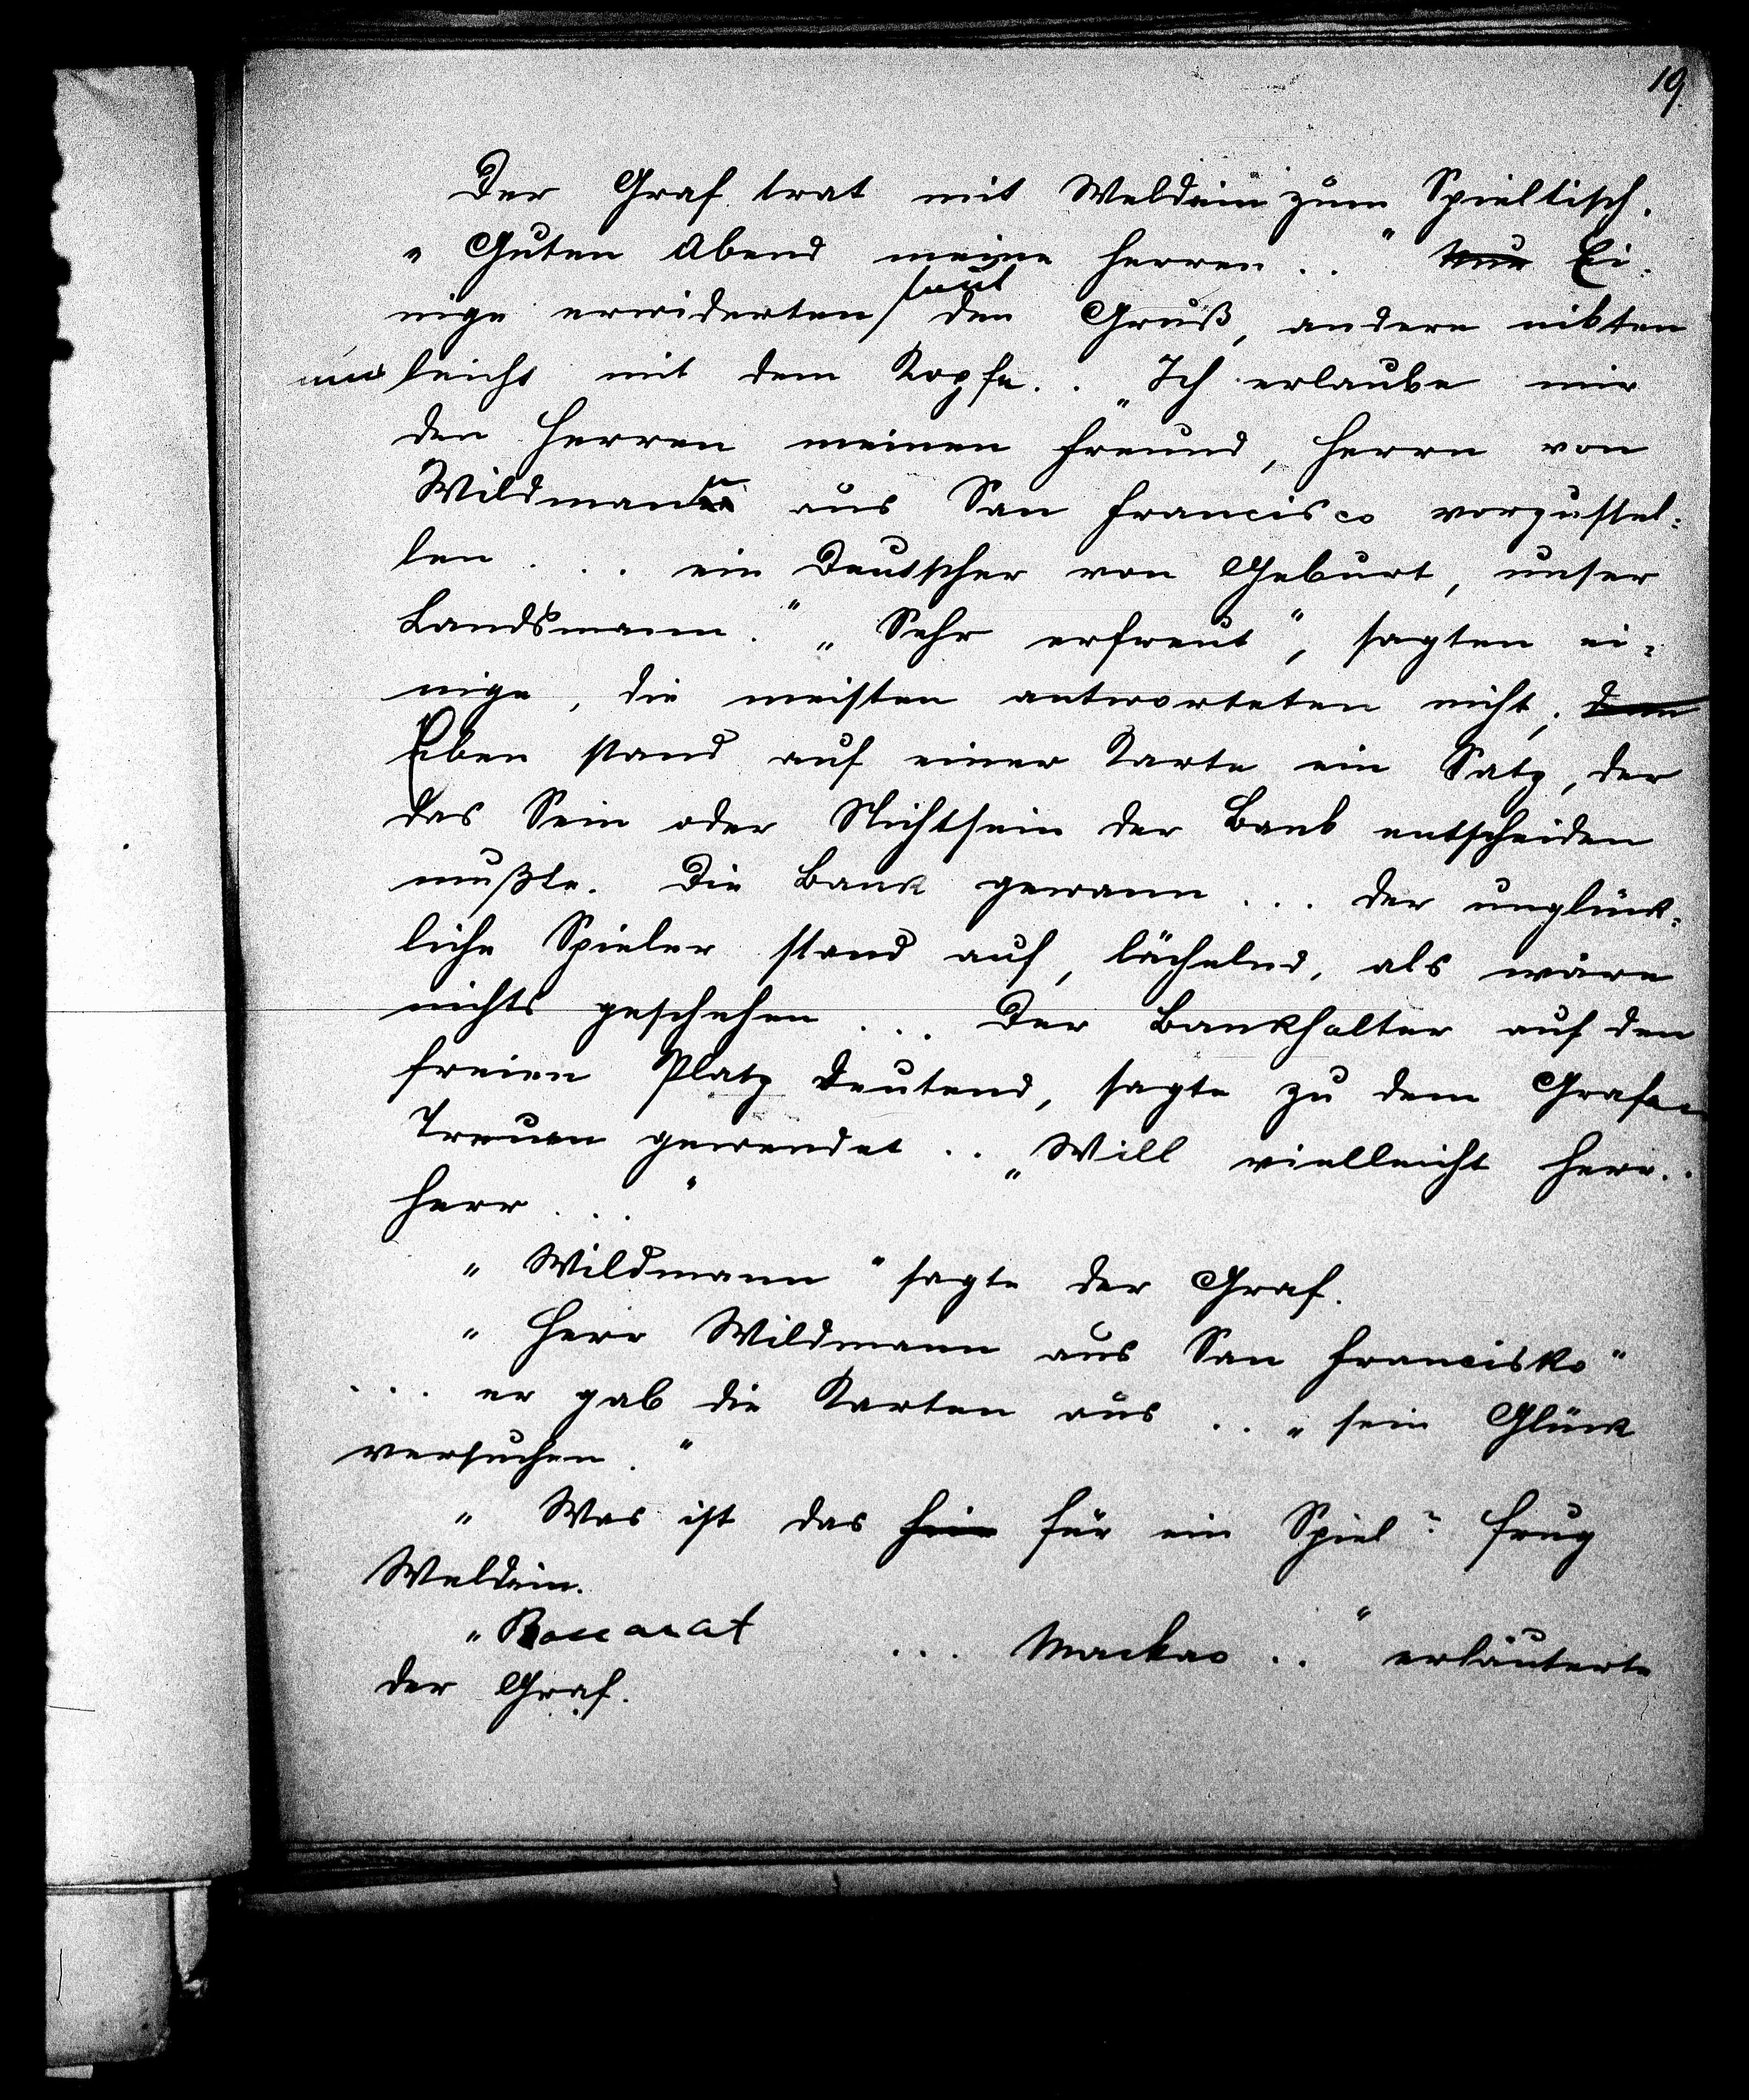 19.
Der Graf trat mit Weldein zum Spieltisch.
„Guten Abend meine Herren . . " Nur Ei=
nige erwiderten laut den Gruß, andere nikten
nur leicht mit dem Kopfe. . „Ich erlaube mir
den Herren meinen Freund, Herrn von
Wildmann aus San Francisco vorzustel=
len . . . ein Deutscher von Geburt, unser
Landsmann." „Sehr erfreut", sagten ei=
nige, die meisten antworteten nicht; denn
Eben stand auf einer Karte ein Satz, der
das Sein oder Nichtsein der Bank entscheiden
mußte. Die Bank gewann . . . der unglück=
liche Spieler stand auf, lächelnd, als wäre
nichts geschehen . . . Der Bankhalter auf den
freien Platz deutend, sagte zu dem Grafen
Treuen gewendet . . „Will vielleicht Herr. .
Herr . . . "
„Wildmann" sagte der Graf.
„Herr Wildmann aus San Francisko"
. . . er gab die Karten aus . . „sein Glück
versuchen."
„Was ist das hier für ein Spiel? frug
Weldein.
„Baccarat . . . Mackao . . " erläuterte
der Graf.